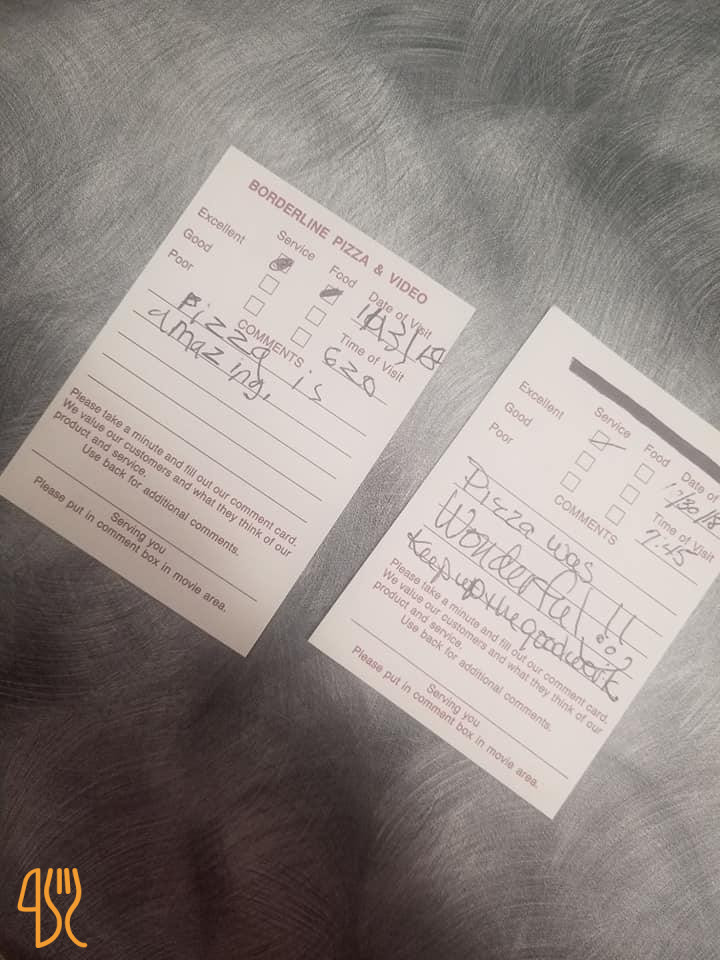 BORDERLINE PIZZA & VIDEO
Service Food Date of Visit
Excellent
Good
Poor
Time of Visit
620
COMMENTS
Pizza is
amazing.
Please take a minute and fill out our comment card.
We value our customers and what they think of our
product and service.
Use back for additional comments.
Serving you
Please put in comment box in movie area.
Service Food Date of
Excellent
Good
Poor
Time of Visit
7:45
COMMENTS
Pizza was
Wonderful!!
Keep up the good work
Please take a minute and fill out our comment card.
We value our customers and what they think of our
product and service.
Use back for additional comments.
Serving you
Please put in comment box in movie area.